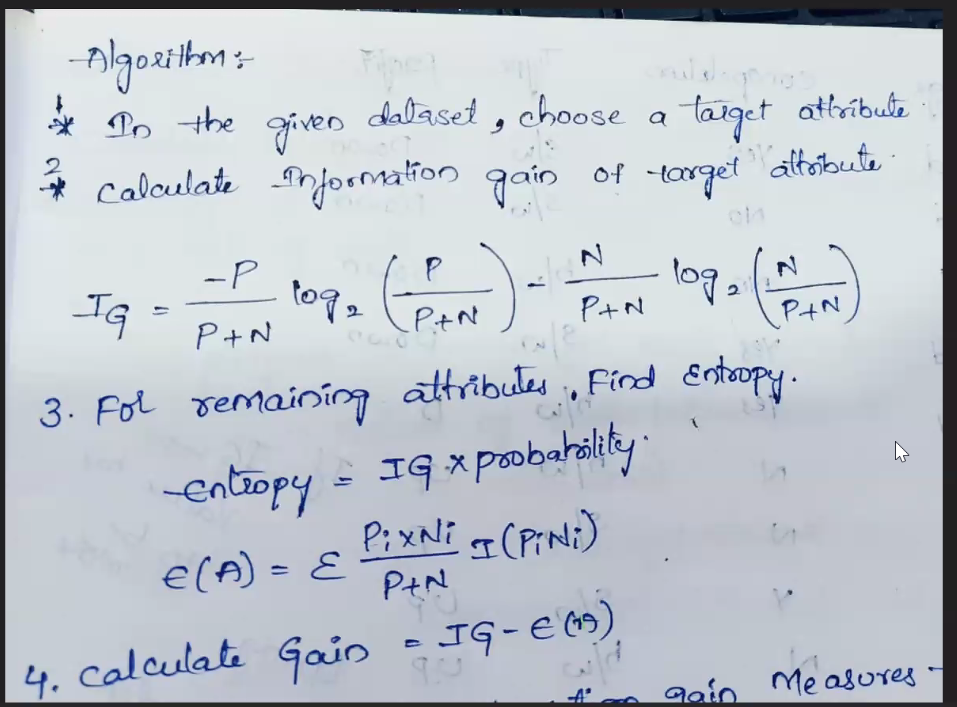 Algorithm:-
1* In the given dataset, choose a target attribute.
2* Calculate Information gain of target attribute.
IG = -P/P+N log2 (P/P+N) - N/P+N log2 (N/P+N)
3. For remaining attributes, Find Entropy.
Entropy = IG x probability.
E(A) = Σ Pi x Ni/P+N I(PiNi)
4. Calculate Gain = IG - E
gain Measures-